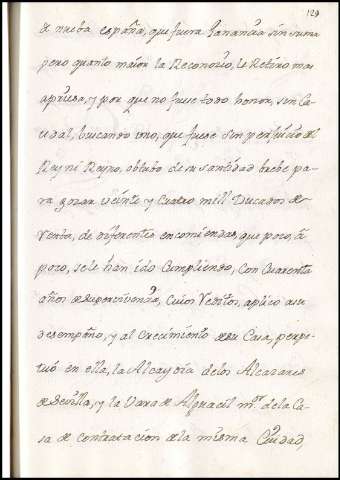 129
de nueba españa, que fuera ganancia sin suma
pero quanto maior la Reconocio, le Retiro mas
apriesa, y por que no fuese todo honor, sin Ca-
udal, buscando uno, que fuese sin perjuicio del
Rey ni Reyno, obtubo de su santidad brebe pa-
ra gozar veinte y cuatro mill Ducados de
Renta, de diferentes encomiendas, que poco, a
poco, se le han ido Cumpliendo, con Cuarenta
años de supervivencia, Cuios Reditos, aplico a su
desempeño, y al Crecimiento de su Casa, perpe-
tuó en ella, la Alcaydia delos Alcazares
de Sevilla, y la Vara de Alguacil mor dela Ca-
sa de contratacion de la misma Ciudad,